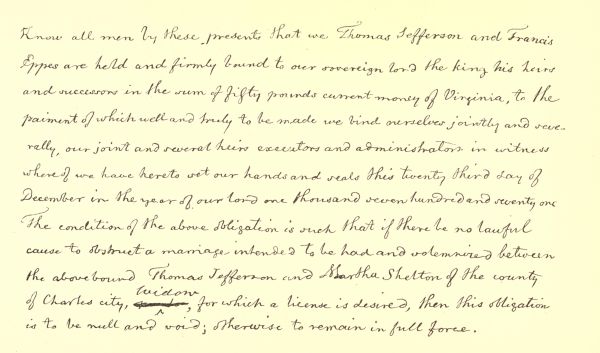 Know all men by these presents that we Thomas Jefferson and Francis
Eppes are held and firmly bound to our sovereign lord the king his heirs
and successors in the sum of fifty pounds current money of Virginia, to the
paiment of which well and truly to be made we bind ourselves jointly and seve-
rally, our joint and several heirs executors and administrators in witness
whereof we have hereto set our hands and seals this twenty third day of
December in the year of our lord one thousand seven hundred and seventy one
The condition of the above obligation is such that if there be no lawful
cause to obstruct a marriage intended to be had and solemnized between
the abovebound Thomas Jefferson and Martha Skelton of the county
of Charles city, Widow, for which a license is desired, then this obligation
is to be null and void; otherwise to remain in full force.